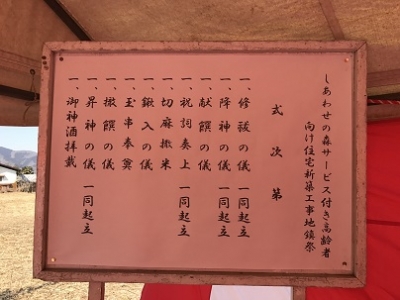 しあわせの森サービス付き高齢者
向け住宅新築工事地鎮祭
式次第
一、修祓の儀 一同起立
一、降神の儀 一同起立
一、献饌の儀
一、祝詞奏上 一同起立
一、切麻撒米
一、鍬入の儀
一、玉串奉奠
一、撤饌の儀
一、昇神の儀 一同起立
一、御神酒拝戴